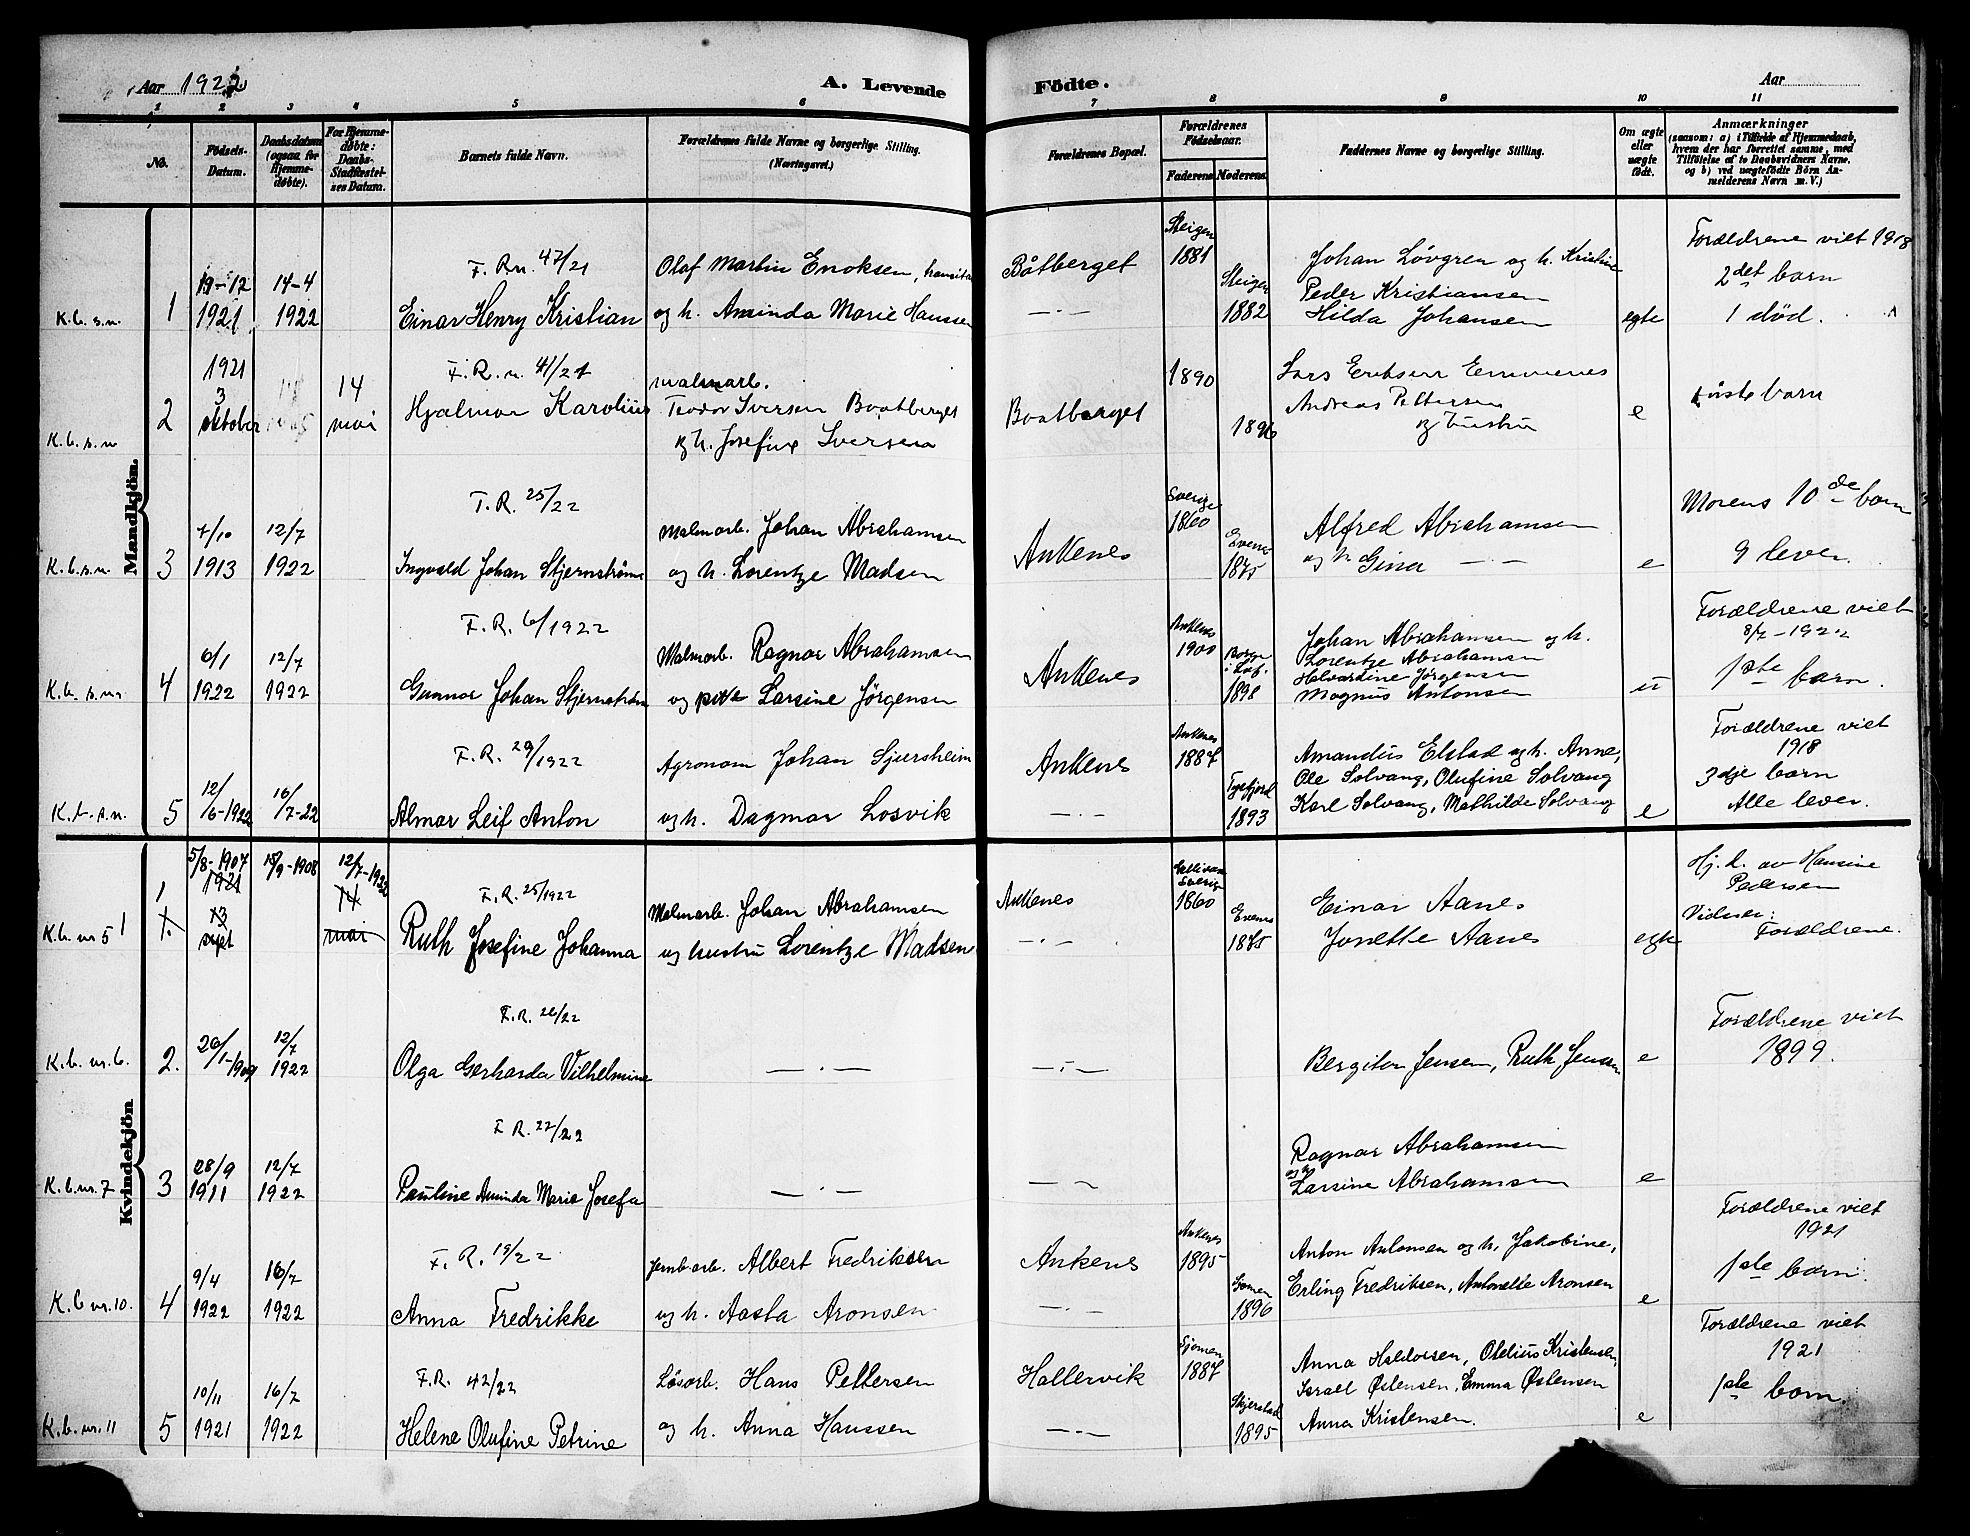 Aar 1922
A. Levende
Födte.
Aar
1 2 3 4 5 6 7 8 9 10 11
No.
Födsels-
Datum.
Daabsdatum
(ogsaa for
Hjemme-
døbte).
For Hjemme-
døbte:
Daabs-
Stadfæstel-
ses Datum.
Barnets fulde Navn.
Forældrenes fulde Navne og borgerlige Stilling.
(Næringsvei.)
Forældrenes Bopæl.
Forældrenes
Födselsaar.
Faderens Moderens
Faddernes Navne og borgerlige Stilling.
Om ægte
eller
uægte
födt.
Anmærkninger
(saasom: a) i Tilfælde af Hjemmedaab,
hvem der har forrettet samme, med
Tilföielse af to Daabsvidners Navne,
og b) ved uægtefödte Börn An-
melderens Navn m. V.)
Mandkjön.
K.b.s.n. 1
19-12
1921
14-4
1922
F. R.n. 47/21
Einar Henry Kristian
Olaf Martin Enoksen,
og h. Aminda Marie Hanssen
Båtberget
Steigen
1881
Steigen
1882
Johan Løvgren og h. Kristine
Peder Kristiansen
Hilda Johansen
egte
Forældrene viet 1918
2det barn
1 død.
K.b.s.n 2
1921
3
oktober
14
mai
F. R. n. 41/21
Hjalmar Karolius
malmarb.
Teodor Iversen Boatberget
og h. Josefine Iversen
Boatberget
1890
1896
Lars Eriksen Emmenes
Andreas Pettersen
og hustru
e
første barn
K.b.s.n. 3
7/10
1913
12/7
1922
F. R. 25/22
Ingvald Johan Stjernstrøm
Malmarb. Johan Abrahamsen
og h. Lorentze Madsen
Ankenes
Sverige
1860
Evenes
1875
Alfred Abrahamsen
og h. Gina — · —
e
Morens 10de barn
9 lever.
K.b. s.n. 4
6/1
1922
12/7
1922
F. R. 6/1922
Gunnar Johan Stjernstrøm
Malmarb. Ragnar Abrahamsen
og pike Larsine Jørgensen
Ankenes
Ankenes
1900
Borge
i Lof.
1898
Johan Abrahamsen og h.
Lorentze Abrahamsen
Halvardine Jørgensen
Magnus Antonsen
u
Forældrene viet
8/7-1922
1ste barn.
K.b.s.n. 5
12/
/6-1922
16/
/7-22
F. R. 29/1922
Almar Leif Anton
Agronom Johan Sjursheim
og h. Dagmar Losvik
Ankenes
— · —
Ankenes
1887
Tysfjord
1893
Amandus Elstad og h. Anne,
Ole Solvang, Olufine Solvang
Karl Solvang, Mathilde Solvang
e
Forældrene viet
1918
3dje barn
Alle lever.
Kvindekjön
K.b. nr 5 1
5/8-1907
1921
13
sept
15/9-1908
12/7-1922
14
mai
F. R. 25/1922
Ruth Josefine Johanna
Malmarb. Johan Abrahamsen
og hustru Lorentze Madsen
Ankenes
— · —
Gellivare
Sverige
1860
Evenes
1875
Einar Aanes
Jonette Aanes
egte
Hj. d. av Hansine
Pedersen
Vidner:
Forældrene.
K.b. nr. 6. 2.
20/
/1-1909
12/7
1922
F. R. 26/22
Olga Gerharda Vilhelmine
— · —
— · —
Bergiton Jensen, Ruth Jensen
e
Forældrene viet
1899.
K.b. nr. 7 3
28/9
1911
12/7
1922
F. R. 27/22
Pauline Aminda Marie Josefa
— · —
— ~
Ragnar Abrahamsen
og h.
Larsine Abrahamsen
e
K.b nr. 10. 4
9/4
1922
16/7
1922
F. R. 19/22
Anna Fredrikke
Jernbarb. Albert Fredriksen
og h. Aasta Aronsen
Ankenes
— · —
Ankenes
1895
Sjomen
1896
Anton Antonsen og h. Jakobine,
Erling Fredriksen, Antonette Aronsen
e
Forældrene viet
1921
1ste barn.
K.b. nr. 11 5
10/11
1921
16/7
1922
F. R. 42/22
Helene Olufine Petrine
Løsarb. Hans Pettersen
og h. Anna Hanssen
Hallervik
— · —
Sjomen
1887
Skjerstad
1895
Anna Haldorsen, Otelius Kristensen
Israel Østensen, Emma Østensen
Anna Kristensen.
e
Forældrene viet
1921
1ste barn.